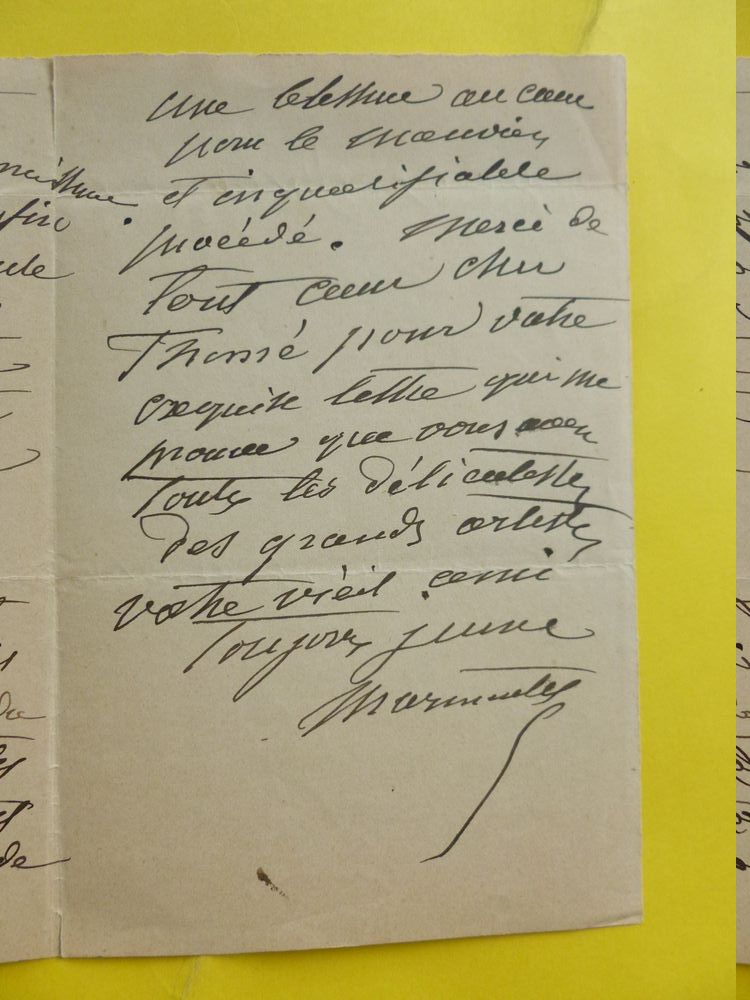 une blessure au cœur
pour le mauvais
et inqualifiable
procédé. Merci de
tout cœur cher
Thomé pour votre
exquise lettre qui me
prouve que vous avez
toutes les délicatesses
des grands artistes
votre vieil ami
toujours jeune
Marmontel